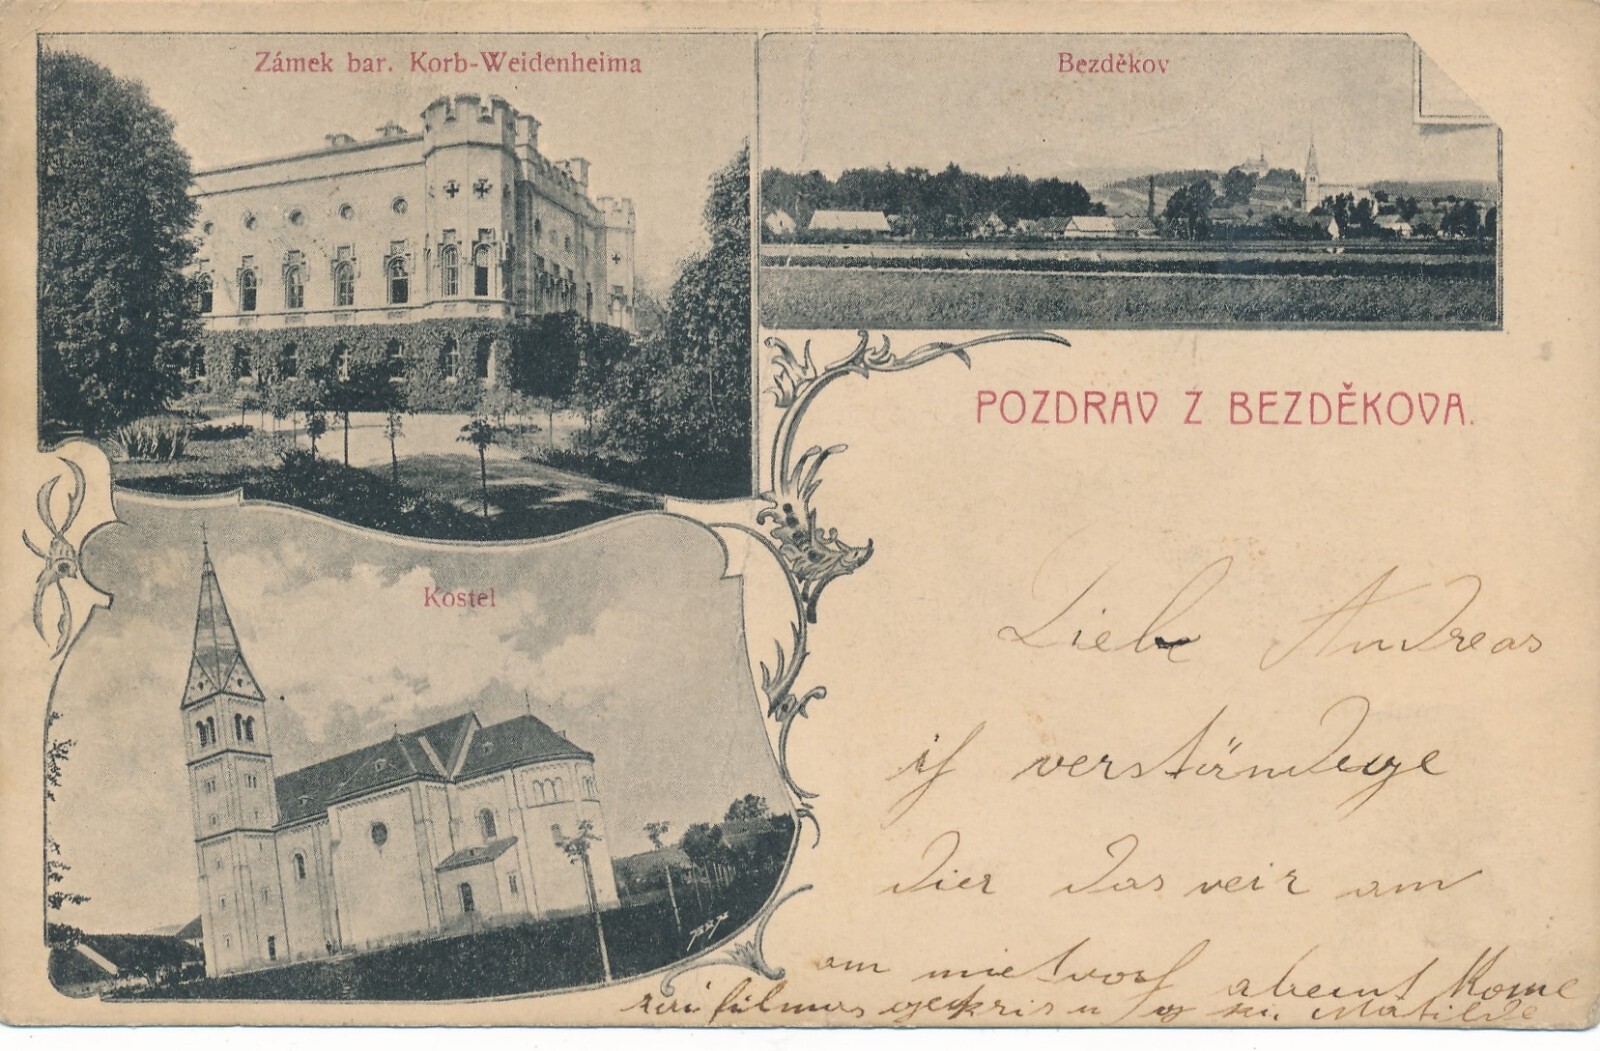 Zámek bar. Korb-Weidenheima
Bezděkov
POZDRAV Z BEZDĚKOVA.
Kostel
Liebe Andreas
ich verständege
dier das weir am
am mietwoch abent kome
filmas gekrisn Matilde